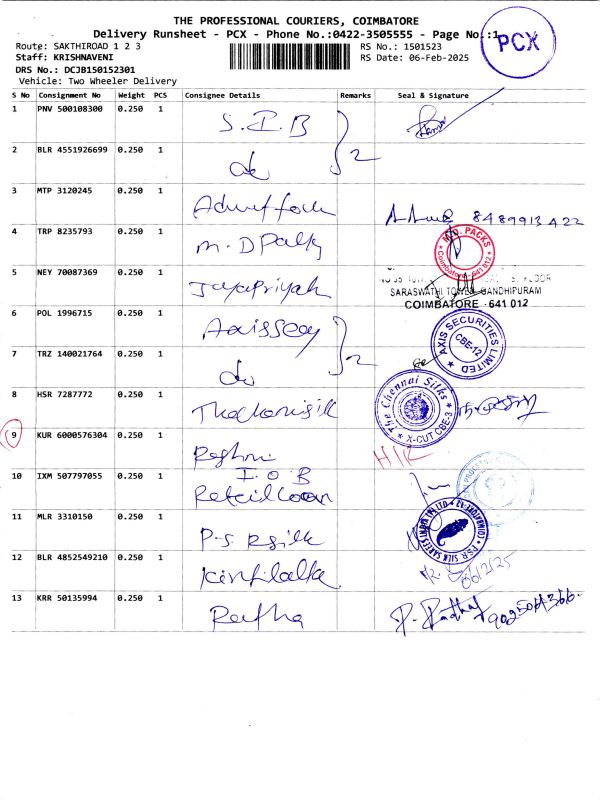 THE PROFESSIONAL COURIERS, COIMBATORE
Delivery Runsheet - PCX - Phone No.:0422-3505555 - Page No.:1
PCX
Route: SAKTHIROAD 1 2 3
RS No.: 1501523
Staff: KRISHNAVENI
RS Date: 06-Feb-2025
DRS No.: DCJB150152301
Vehicle: Two Wheeler Delivery
S No Consignment No Weight PCS Consignee Details Remarks Seal & Signature
1 PNV 500108300 0.250 1 S.I.B
2 BLR 4551926699 0.250 1 do 2
3 MTP 3120245 0.250 1 8489913422
4 TRP 8235793 0.250 1 M.D Pack M.D. PACKS Coimbatore - 641 012
5 NEY 70087369 0.250 1 Jayapriyah FLOOR
SARASWATHI TOWER GANDHIPURAM
COIMBATORE - 641 012
6 POL 1996715 0.250 1 AXIS SECURITIES LIMITED CBE-12
7 TRZ 140021764 0.250 1 do 2
8 HSR 7287772 0.250 1 The Chennai Silks X-CUT CBE-3
9 KUR 6000576304 0.250 1
10 IXM 507797055 0.250 1 I O B
Retail Loan
11 MLR 3310150 0.250 1 P.S.R silk PSR SILK SAREES INDIA (P) LTD
12 BLR 4852549210 0.250 1
13 KRR 50135994 0.250 1